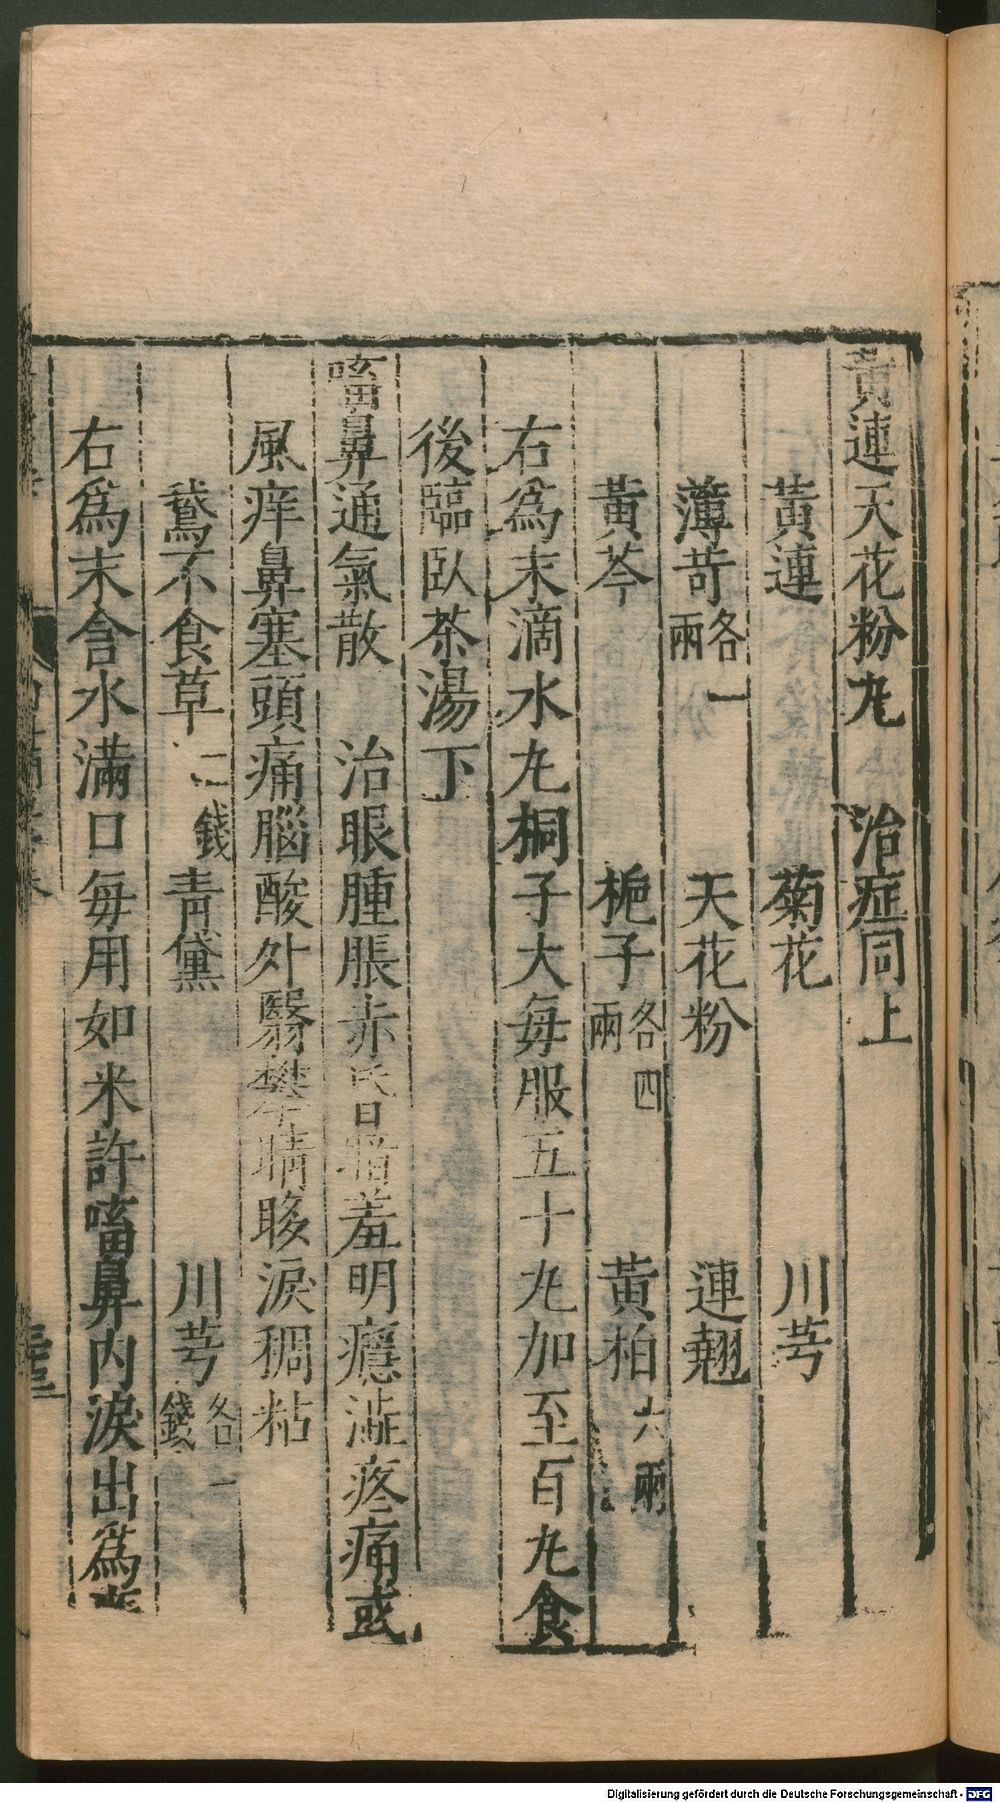 黃連天花粉丸　治症同上
黃連　菊花　川芎
薄苛各一兩　天花粉　連翹
黃芩　梔子各四兩　黃柏六兩
右爲末滴水丸桐子大每服五十丸加至百丸食
後臨臥茶湯下
㗜鼻通氣散　治眼腫脹赤昏暗羞明癮澁疼痛或
風痒鼻塞頭痛腦酸外翳攀睛眵淚稠粘
鵞不食草二錢　靑黛　川芎各一錢
右爲末含水滿口每用如米許㗜鼻內淚出爲
Digitalisierung gefördert durch die Deutsche Forschungsgemeinschaft - DFG